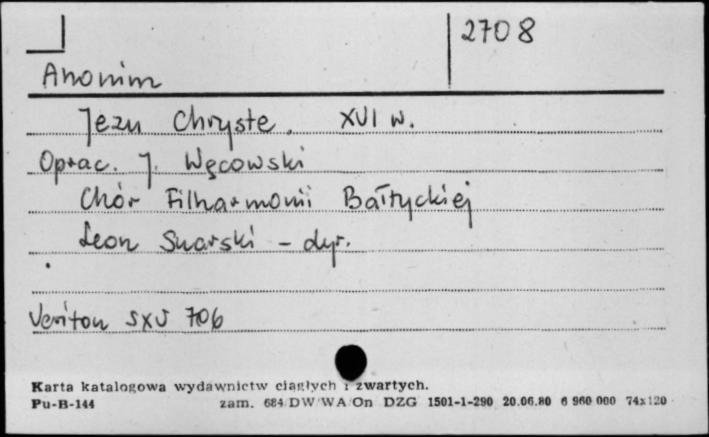 2708
Anonim
Jezu Chryste. XVI w.
Oprac. J. Węcowski
Chór Filharmonii Bałtyckiej
Leon Snarski - dyr.
Veriton SXV 706
Karta katalogowa wydawnictw ciągłych i zwartych.
Pu-B-144 zam. 684/DW/WA/On DZG 1501-1-290 20.06.80 6 960 000 74x120